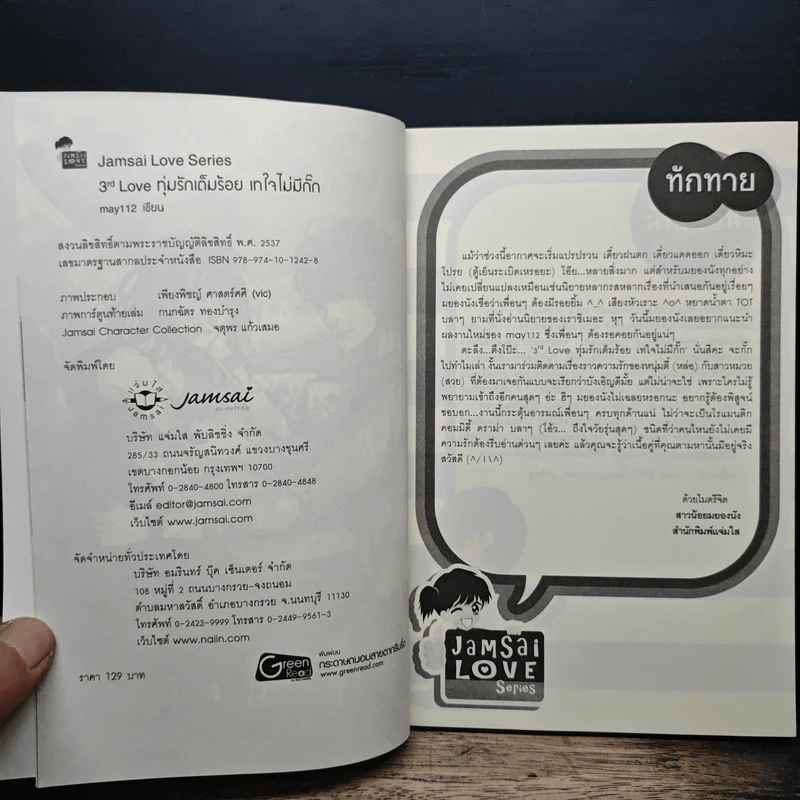 JAMSAI
LOVE
Series
Jamsai Love Series
3rd Love ทุ่มรักเต็มร้อย เทใจไม่มีกั๊ก
may112 เขียน
สงวนลิขสิทธิ์ตามพระราชบัญญัติลิขสิทธิ์ พ.ศ. 2537
เลขมาตรฐานสากลประจำหนังสือ ISBN 978-974-10-1242-8
ภาพประกอบ เพียงพิชญ์ ศาสตร์ศศิ (vic)
ภาพการ์ตูนท้ายเล่ม กนกฉัตร ทองบำรุง
Jamsai Character Collection จตุพร แก้วเสมอ
จัดพิมพ์โดย
แจ่มใส
Jamsai
Jamsai
บริษัท แจ่มใส พับลิชชิ่ง จำกัด
285/33 ถนนจรัญสนิทวงศ์ แขวงบางขุนศรี
เขตบางกอกน้อย กรุงเทพฯ 10700
โทรศัพท์ 0-2840-4800 โทรสาร 0-2840-4848
อีเมล์ editor@jamsai.com
เว็บไซต์ www.jamsai.com
จัดจำหน่ายทั่วประเทศโดย
บริษัท อมรินทร์ บุ๊ค เซ็นเตอร์ จำกัด
108 หมู่ที่ 2 ถนนบางกรวย-จงถนอม
ตำบลมหาสวัสดิ์ อำเภอบางกรวย จ.นนทบุรี 11130
โทรศัพท์ 0-2423-9999 โทรสาร 0-2449-9561-3
เว็บไซต์ www.naiin.com
Green
Read
พิมพ์บน
กระดาษถนอมสายตากรีนรี้ด
www.greenread.com
ราคา 129 บาท
ทักทาย
แม้ว่าช่วงนี้อากาศจะเริ่มแปรปรวน เดี๋ยวฝนตก เดี๋ยวแดดออก เดี๋ยวหิมะ
โปรย (ตู้เย็นระเบิดเหรอยะ) โอ๊ย...หลายสิ่งมาก แต่สำหรับมยองนังทุกอย่าง
ไม่เคยเปลี่ยนแปลงเหมือนเช่นนิยายหลากรสหลากเรื่องที่นำเสนอกันอยู่เรื่อยๆ
มยองนังเชื่อว่าเพื่อนๆ ต้องมีรอยยิ้ม ^_^ เสียงหัวเราะ ^o^ หยาดน้ำตา TOT
บลาๆ ยามที่นั่งอ่านนิยายของเราชิเมอะ หุๆ วันนี้มยองนังเลยอยากแนะนำ
ผลงานใหม่ของ may112 ซึ่งเพื่อนๆ ต้องรอคอยกันอยู่แน่ๆ
ตะลึง...ตึงโป๊ะ... '3rd Love ทุ่มรักเต็มร้อย เทใจไม่มีกั๊ก' นั่นสิคะ จะกั๊ก
ไปทำไมเล่า งั้นเรามาร่วมติดตามเรื่องราวความรักของหนุ่มตี๋ (หล่อ) กับสาวหมวย
(สวย) ที่ต้องมาเจอกันแบบจะเรียกว่าบังเอิญดีมั้ย แต่ไม่น่าจะใช่ เพราะใครไม่รู้
พยายามเข้าถึงอีกคนสุดๆ อ่ะ ฮิๆ มยองนังไม่เฉลยหรอกนะ อยากรู้ต้องพิสูจน์
ขอบอก...งานนี้กระตุ้นอารมณ์เพื่อนๆ ครบทุกด้านแน่ ไม่ว่าจะเป็นโรแมนติก
คอมมิดี้ ดราม่า บลาๆ (โอ๊ว... ถึงใจวัยรุ่นสุดๆ) ชนิดที่ว่าคนไหนยังไม่เคยมี
ความรักต้องรีบอ่านด่วนๆ เลยค่ะ แล้วคุณจะรู้ว่าเนื้อคู่ที่คุณตามหานั้นมีอยู่จริง
สวัสดี (^/|\^)
ด้วยไมตรีจิต
สาวน้อยมยองนัง
สำนักพิมพ์แจ่มใส
JAMSAI
LOVE
Series